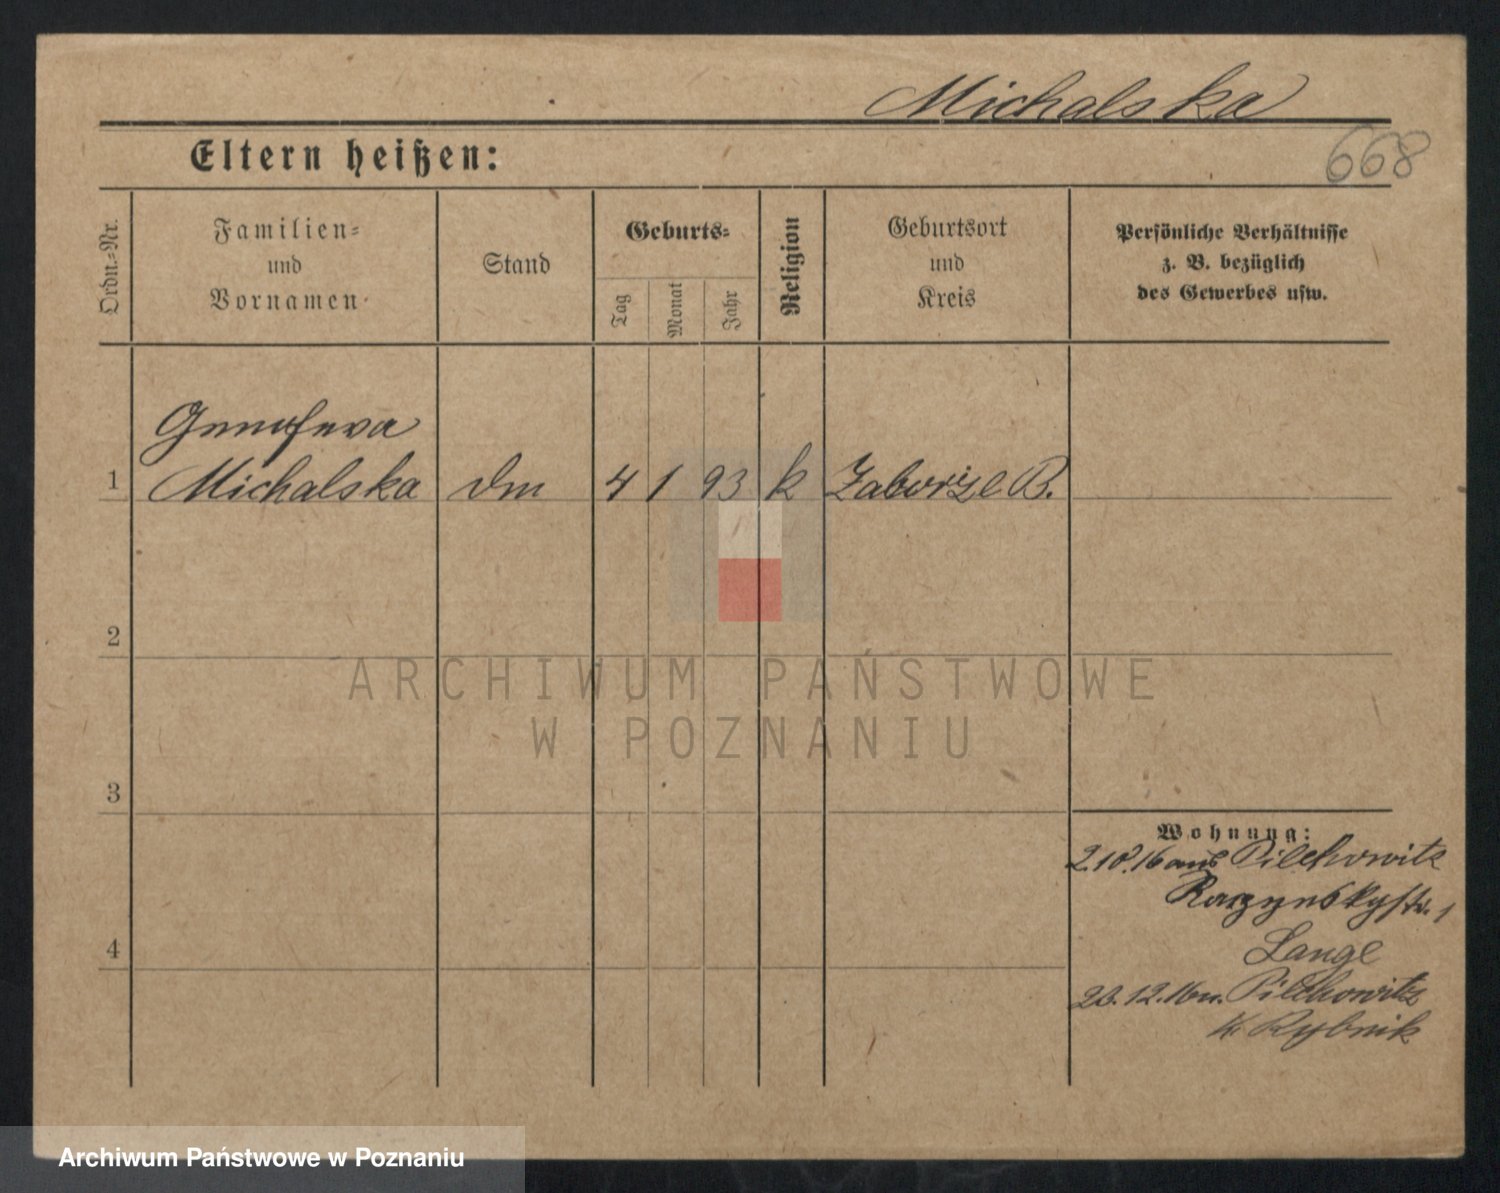 Michalska
668
Eltern heißen:
Ordn.-Nr.
Familien-
und
Vornamen
Stand
Geburts-
Tag
Monat
Jahr
Religion
Geburtsort
und
Kreis
Persönliche Verhältnisse
z. B. bezüglich
des Gewerbes usw.
Genofeva
1 Michalska dm 4 1 93 k Zaborze B.
2
3
4
Wohnung:
2.10.16 aus Pilchowitz
Razynskystr. 1
Lange
23.12.16 n. Pilchowitz
Kr. Rybnik
ARCHIWUM PAŃSTWOWE
W POZNANIU
Archiwum Państwowe w Poznaniu